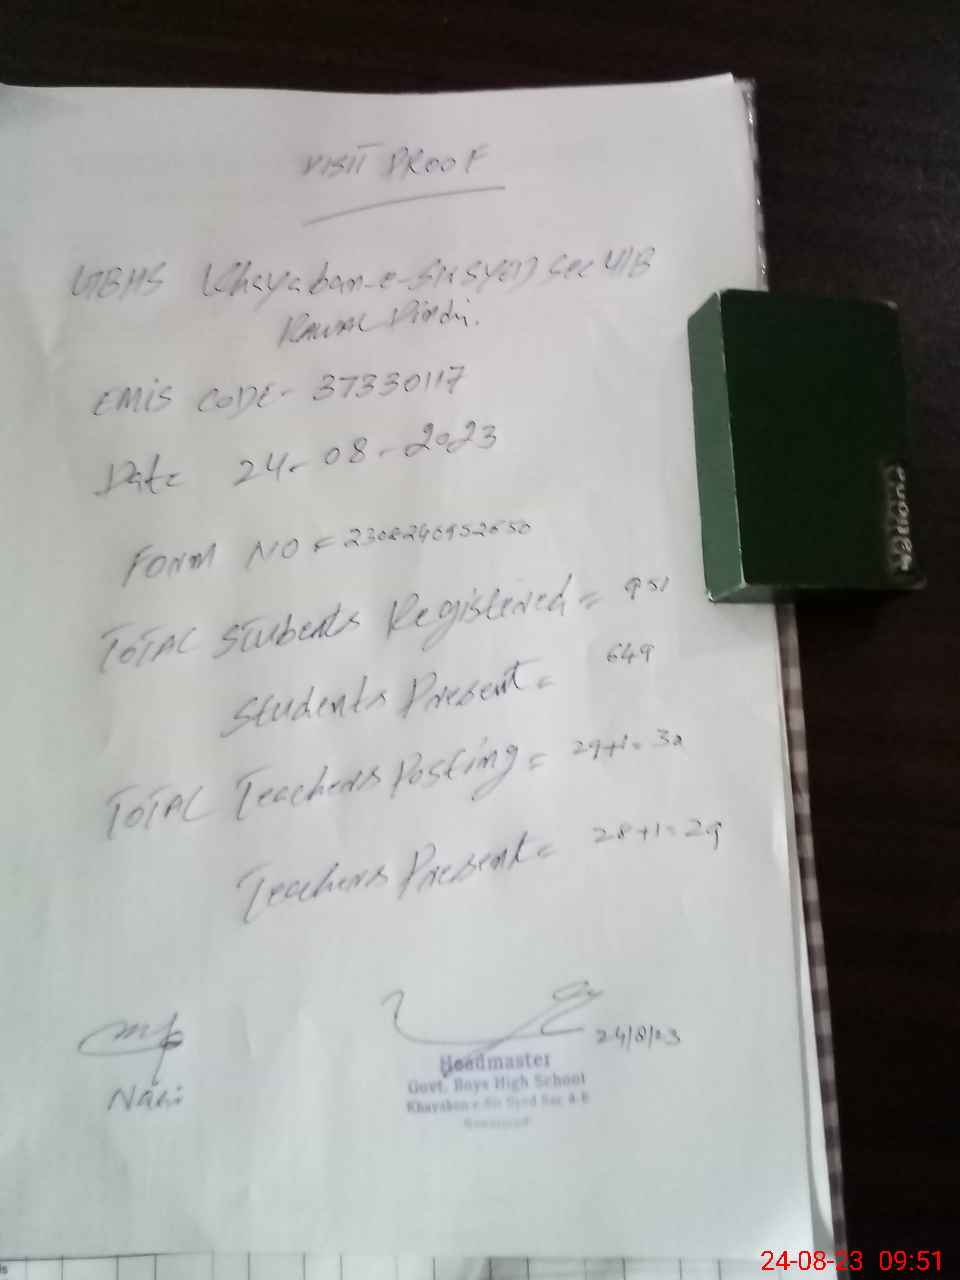 VISIT PROOF
GBHS Khayaban-e-Sirsyed Sec 4/B
RAWAL Pindi.
EMIS CODE- 37330117
Date 24-08-2023
FORM NO = 2308240952650
TOTAL Students Registered = 951
Students Present = 649
TOTAL Teachers Posting = 29+1=30
Teachers Present = 28+1=29
24/8/23
Headmaster
Govt. Boys High School
Khayaban-e-Sir Syed Sec 4-B
24-08-23 09:51